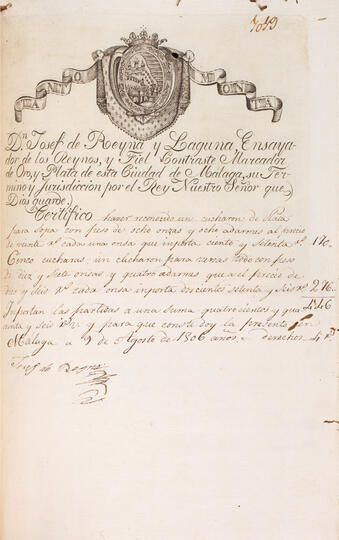 1019
TANTO MONTA
Dn. Josef de Reyna y Laguna, Ensaya-
dor de los Reynos, y Fiel Contraste Marcador
de Oro, y Plata de esta Ciudad de Malaga, su Ter-
mino y Jurisdiccion por el Rey Nuestro Señor que
Dios guarde.
Certifico haver reconocido un cucharon de Plata
para Sopa con peso de ocho onzas y ocho adarmes al precio
de veinte rs. cada una onsa que importa ciento y setenta rs. 170.
Cinco cucharas un para todo con peso
de diez y siete onsas y quatro adarmes que a el precio de
diez y seis rs. cada onsa importa doscientos setenta y seis rs. 276.
Importan las partidas a una suma quatrocientos y qua 446
renta y seis rs. vn. y para que conste doy la presente en
Malaga a 9 de Agosto de 1806 años. derechos 4 rs.
Josef de Reyna